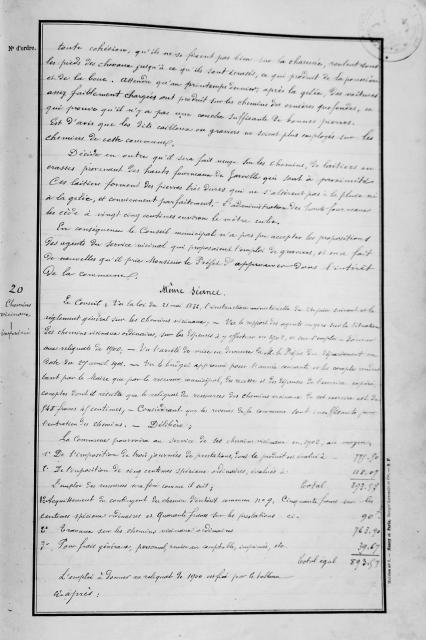 N° d'ordre.
toute cohésion, qu'ils ne se fixent pas bien sur la chaussée, roulent sous
les pieds des chevaux jusqu'à ce qu'ils sont écrasés, ce qui produit de la poussière
et de la boue. Attendu qu'au printemps dernier, après la gelée, des voitures
assez faiblement chargées ont produit sur les chemins des ornières profondes, ce
qui prouve qu'il n'y a pas une couche suffisante de bonnes pierres.
Est d'avis que les dits cailloux ou graviers ne soient plus employés sur les
chemins de cette commune.
Décide en outre qu'il sera fait usage sur les chemins, de laitiers en
crasses provenant des hauts fourneaux de qui sont à proximité
Ces laitiers forment des pierres très dures qui ne s'altèrent pas à la pluie ni
à la gelée, et conviennent parfaitement. L'administration des hauts fourneaux
les cède à vingt cinq centimes environ le mètre cube.
En conséquence le Conseil municipal n'a pas pu accepter les propositions
des agents du service vicinal qui proposaient l'emploi de graviers, et en a fait
de nouvelles qu'il prie Monsieur le Préfet d'approuver dans l'intérêt
de la commune.
20
Chemins
vicinaux
Même Séance.
Le Conseil; Vu la loi du 21 mai 1836, l'instruction ministérielle du et le
règlement général sur les chemins vicinaux, - Vu le rapport des agents voyers sur la situation
des chemins vicinaux ordinaires, sur les dépenses à y effectuer en 1902, et sur l'emploi à donner
aux reliquats de 1900, - Vu l'arrêté de mise en demeure de M. le Préfet du département en
date du 27 avril 1901, - Vu le budget approuvé pour l'année courante et les comptes rendus
tant par le Maire que par le receveur municipal, des recettes et des dépenses de l'exercice expiré,
comptes dont il résulte que le reliquat des ressources des chemins vicinaux de cet exercice est de
francs centimes, - Considérant que les revenus de la commune sont insuffisants pour
l'entretien des chemins. - Délibère;
La Commune pourvoira au service de ses chemins vicinaux en 1902, au moyen;
1° De l'imposition de trois journées de prestations, dont le produit est évalué à
2° De l'imposition de cinq centimes spéciaux ordinaires, évalués à
L'emploi des ressources sera fait comme il suit; total
1° Acquittement du contingent du chemin d'intérêt commun n° 9, Cinquante francs sur les
centimes spéciaux ordinaires et Quarante francs sur les prestations. ci- 90
2° Travaux sur les chemins vicinaux ordinaires 763.90
3° Pour frais généraux, personnel, remise au comptable, imprimés, etc. 39.67
total égal 893.57
L'emploi à donner au reliquat de 1900 est fixé par le tableau
ci-après: